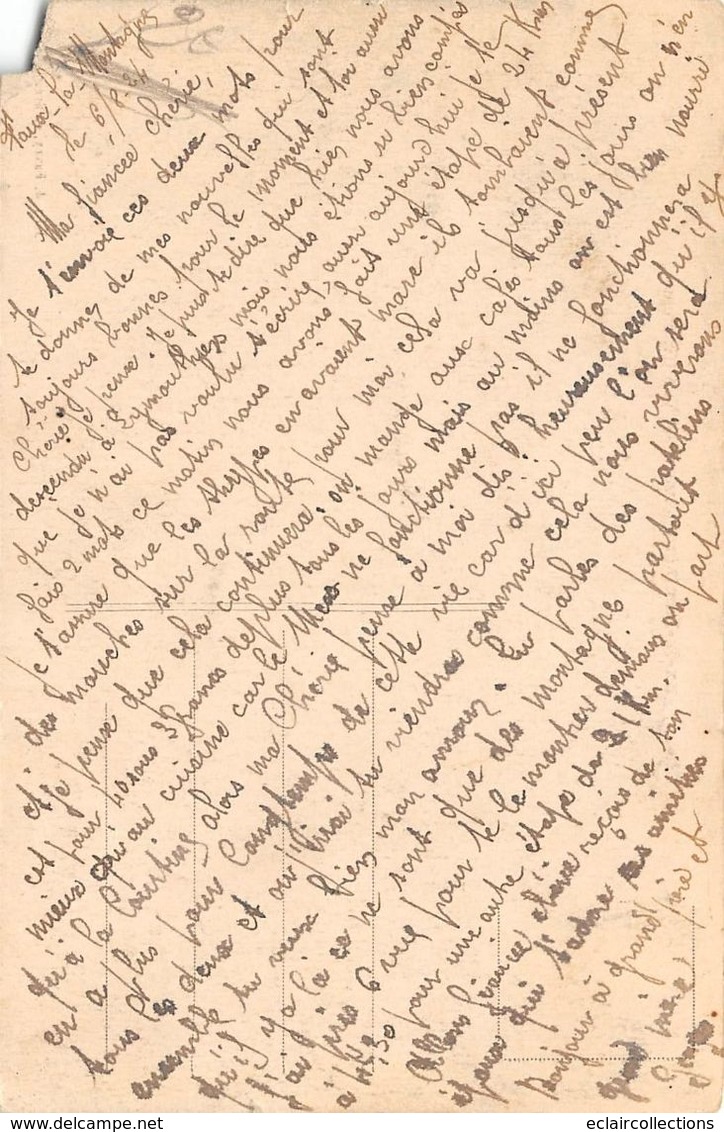 Faux-la-Montagne
le 6/8/24
Ma fiancée Chérie,
Je t'envoie ces deux mots pour
te donner de mes nouvelles qui sont
toujours bonnes pour le moment et toi aussi
Chérie je pense. Je puis te dire que hier nous avons
descendu à Eymoutiers mais nous étions si bien campés
que je n'ai pas voulu t'écrire, aussi aujourd'hui je te
fais 2 mots ce matin nous avons fait une étape de 24 Kms
je t'assure que les types en avaient marre ils tombaient comme
des mouches sur la route pour moi cela va jusqu'à présent
et je pense que cela continuera. on mange aux cafés tous les jours on n'en
est pour 40 sous 3 francs de plus tous les jours mais au moins on est bien nourri
mieux qu'au cuisine car le Mess ne fonctionne pas il ne fonctionnera
qu'à la Courtine alors ma Chérie pense à moi dis, heureusement qu'il y
en a plus pour longtemps de cette vie car d'ici peu l'on sera
tous les deux et oui tu viendras comme cela nous vivrons
ensemble tu veux bien mon amour. Tu parles des patelins
qu'il y a là ce ne sont que des montagnes partout
j'ai pris pour te le montrer demain on part
à 4h30 pour une autre étape de 21 Km.
Allons fiancée chérie reçois de ton
qui t'adore ses amitiés
Bonjour à grand père et
grand mère
eclaircollections